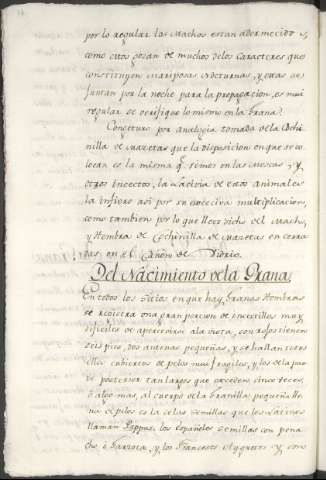 por lo regular los Machos estan adormecidos,
como estos gosan de muchos delos Caracteres que
constituyen Mariposas Nocturnas, y estas se
juntan por la noche para la propagacion, es mui
regular se verifique lo mismo en la Grana.
Conjeturo por analogia tomada dela Cochi-
nilla de Maretas que la disposicion en que se co-
locan es la misma q. vemos en las Moscas, y
otros Insectos, la de estos animales
la infiero asi por su excesiva multiplicacion,
como tambien por lo que llevo dicho del Macho,
y Hembra de Cochinilla de Maretas encerra
das en el Cañon de Vidrio.
Del Nacimiento dela Grana.
En todos los Sitios en que hay Granas Hembras
se registra una gran porcion de Insectillos muy
dificiles de apercevirse ala vista, son rojos tienen
seis pies, dos antenas pequeñas, y se hallan todos
ellos cubiertos de pelos mui fragiles, y los dela par
te posterior tan largos que exceden cinco veces,
ó algo mas, al cuerpo dela Granilla pequeña lle
na de pelos es la delas Semillas que los Latinos
llaman Pappus, los Españoles Semillas con pena
cho, ó Garzota, y los Franceses Aygrette y como